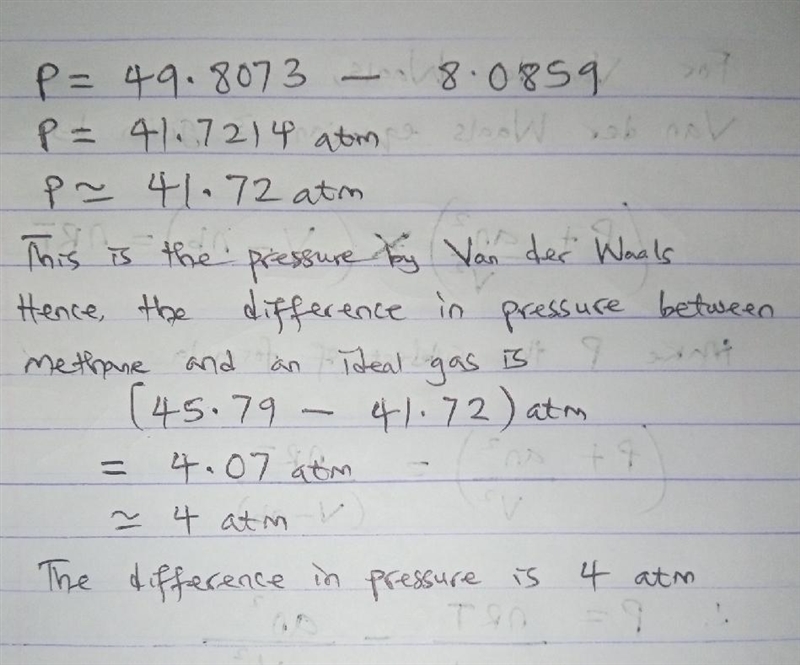 P = 49.8073 - 8.0859
P = 41.7214 atm
P ≃ 41.72 atm
This is the pressure by Van der Waals
Hence, the difference in pressure between
methane and an ideal gas is
(45.79 - 41.72) atm
= 4.07 atm
≃ 4 atm
The difference in pressure is 4 atm